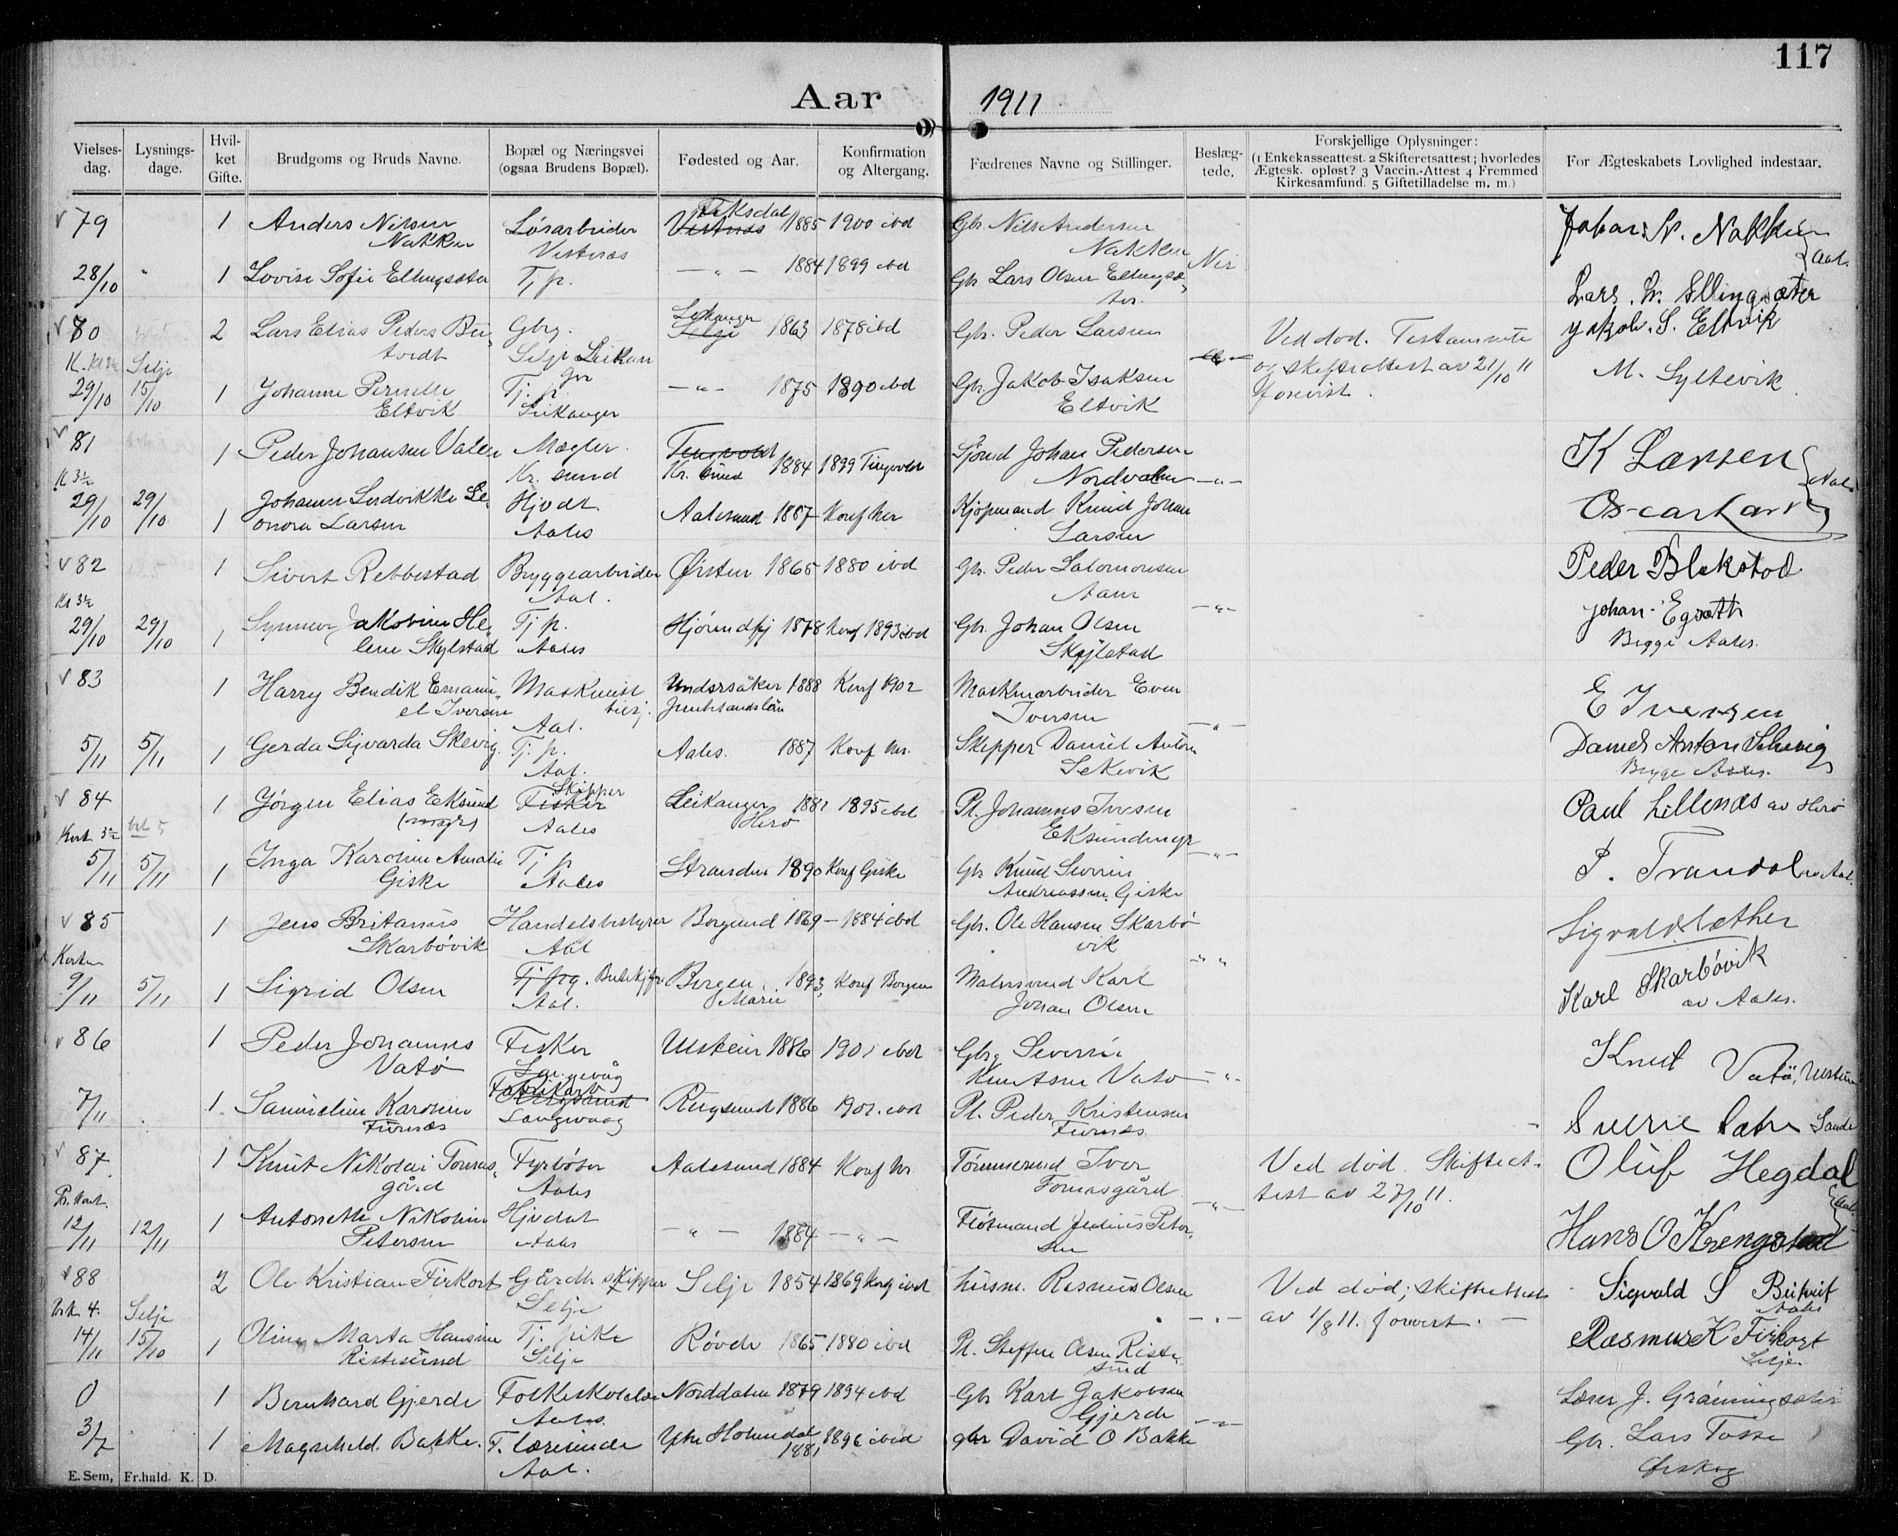 117
Aar 1911
Vielses-dag. Lysnings-dage. Hvil-ket Gifte. Brudgoms og Bruds Navne. Bopæl og Næringsvei (ogsaa Brudens Bopæl). Fødested og Aar. Konfirmation og Altergang. Fædrenes Navne og Stillinger. Beslæg-tede. Forskjellige Oplysninger: (1 Enkekasseattest. 2 Skifteretsattest; hvorledes Ægtesk. opløst? 3 Vaccin.-Attest 4 Fremmed Kirkesamfund. 5 Giftetilladelse m. m.) For Ægteskabets Lovlighed indestaar.
79 1 Anders Nilsen Løsarbeider Vestnæs Fiksdal 1885 1900 ibd Gbr. Nils Andersen Johan N. Nakken
Nakken Vestnæs Nakken Aal.
28/10 " 1 Lovise Sofie Ellingsæter Tj. p. — " — 1884 1899 ibd Gbr Lars Olsen Ellingsæ- Nei
ter. Lars. L. Ellingsæter
80 2 Lars Elias Peders Gbrg. Selje Leikanger 1863 1878 ibd Gbr. Peder Larsen Ved død. Testamente Jakob. S. Eltvik
Selje Selje Leikanger og skifteattest av 21/10 11 M. Syltevik
29/10 15/10 1 Johanne Pernelle Tj. p. — " — 1875 1890 ibd Gbr Jakob Isaksen forevist.
Eltvik Leikanger Eltvik
81 1 Peder Johansen Valen Mægler. Tingvold 1884 1899 Tingvold Sjømd Johan Pedersen K Larsen
K 3½ Kr. sund Kr. sund Nordvalen — " — Aales
29/10 29/10 1 Johanna Ludvikke Le- Hjvdt Aalesund 1887 Konf her Kjøpmand Knud Johan Oscar Larsen
onora Larsen Aales Larsen
82 1 Sivert Rebbestad Bryggearbeider Ørsten 1865 1880 ibd Gbr. Peder Salomonsen Peder Blekstad
Kr 3½ Aal. Aam — " —
29/10 29/10 1 Synneve Jakobine He- Tj p. Hjørundfj 1878 Konf 1893 ibd Gbr. Johan Olsen Johan Egseth
lene Skylstad Aales Skylstad Begge Aales.
83 1 Harry Bendik Emanu- Maskinist Undersåker 1888 Konf 1902 Maskinarbeider Even E Iversen
el Iversen Aal. Jemtlandslän Iversen — " —
5/11 5/11 1 Gerda Sigvarda Skevig Tj. p. Aales. 1887 Konf her. Skipper Daniel Anton Daniel Anton Skevig
Aal. Sekevik Begge Aales.
84 1 Jørgen Elias Eksund Fisker Skipper Leikanger 1881 1895 ibd Pl. Johannes Iversen Paul Lillenes av Herø
Kort 3½ Aales Herø Eksundmyr — " —
5/11 5/11 1 Inga Karoline Amalie Tj p Stranden 1890 Konf Giske Gbr Knud Severin P. Trandal
Giske Aales Andreassen Giske
85 1 Jens Britanus Handelsbestyrer Borgund 1869 — 1884 ibd Gbr. Ole Hansen Skarbø Sigvald Sæther
Skarbøvik Aal vik " "
9/11 5/11 1 Sigrid Olsen Bergen. 1893 Konf Bergen Malersvend Karl Karl Skarbøvik
Aal. Marie Johan Olsen av Aales.
86 1 Peder Johannes Fisker Ulstein 1886 1901 ibd Gbrg Severin Knut Vatø, Ulstein
Vatø Langevåg Knutsen Vatø — " —
7/11 . 1 Samueline Karoline Fabrikarb Rugsund 1886 1901. ibd Pl. Peder Kristensen
Furnæs Langevaag Furnæs
87 1 Knut Nikolai Tomas- Fyrbøter Aalesund 1884 Konf her Tømmermd Iver Ved død. Skifteat- Oluf Hegdal
gård Aales Tomasgård — " — test av 27/10 11.
12/11 12/11 1 Antonette Nikoline Hjvdat — " — 1884 — " — Fløtmand Julius Peter- Hans O Krengstad
Petersen Aales sen
88 2 Ole Kristian Firkort Gårdbr skipper Selje 1854 1869 Konf ibd husm. Rasmus Olsen Ved død; skifteattest Sigvald S
Selje Selje av 1/8 11. forevist. — Aales
14/11 15/10 1 Oline Marta Hansine Tj. pike Røvde 1865 1880 ibd Pl. Steffen Olsen Riste- Rasmus K Firkort
Ristesund Selje sund Selje
0 1 Bernhard Gjerde Folkeskolelær Norddalen 1879 1894 ibd Gbr Karl Jakobsen Lærer J. Grønningsæter
Aales. Gjerde — " —
3/7 1 Magnhild Bakke. F. lærerinde 1881 1896 ibid gbr David O Bakke Gbr. Lars Tosse
Aal. Ørskog
E. Sem, Fr.hald. K. D.